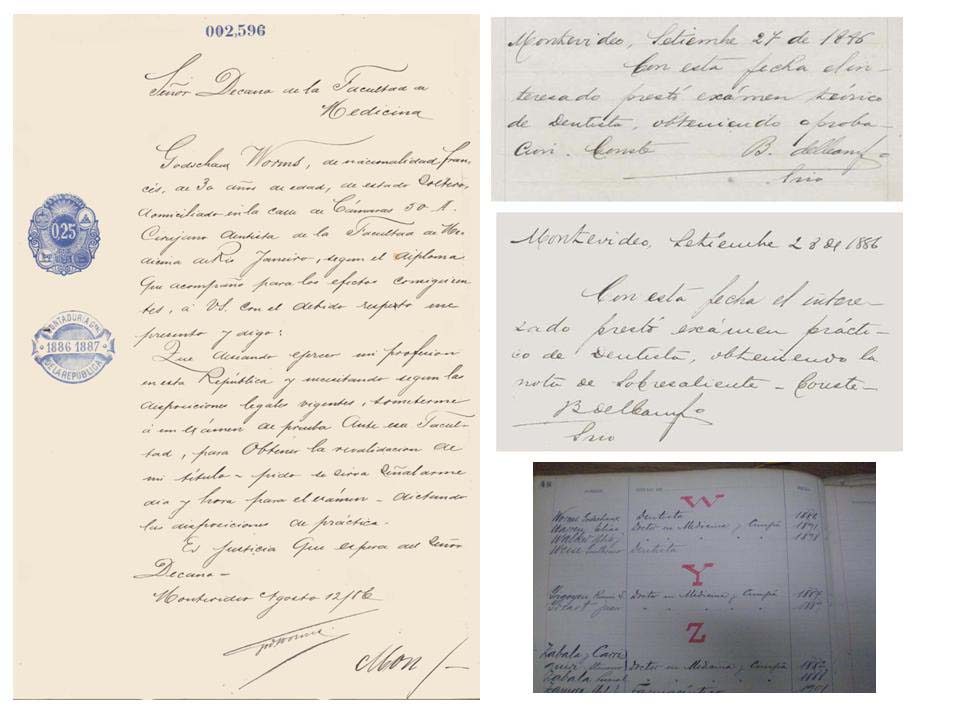 002,596
Señor Decano de la Facultad de
Medicina
Godschaux Worms, de nacionalidad fran-
cés, de 30 años de edad, de estado Soltero,
domiciliado en la casa de Cámaras 50 A.
Cirujano dentista de la Facultad de Me-
dicina de Rio Janeiro, segun el diploma
que acompaño para los efectos consiguien-
tes, á VS. con el debido respeto me
presento y digo:
Que deseando ejercer mi profesion
en esta República y necesitando segun las
disposiciones legales vigentes, someterme
á un exámen de prueba Ante esa Facul-
tad, para Obtener la revalidacion de
mi título - pido se sirva Señalarme
dia y hora para el exámen - dictando
las disposiciones de práctica.
Es justicia Que espera del Señor
Decano -
Montevideo Agosto 12/86
Mon/-
0,25
CONTADURIA GRAL
1886 1887
DE LA REPUBLICA
Montevideo, Setiembre 27 de 1886
Con esta fecha el in-
teresado prestó exámen teórico
de Dentista, obteniendo aproba
cion. Conste B. del Campo
Srio
Montevideo, Setiembre 28 de 1886
Con esta fecha el intere-
sado prestó exámen prácti-
co de Dentista, obteniendo la
nota de Sobresaliente - Conste -
B del Campo
Srio
48
W
Worms Godschaux Dentista 1886
Warren Doctor en Medicina y Cirugía 1871
1878
Weise Guillermo Dentista
Y
Yrigoyen Doctor en Medicina y Cirugía
Z
Zabala y Carri
Doctor en Medicina y Cirugía 1882
Zabala
Farmacéutico